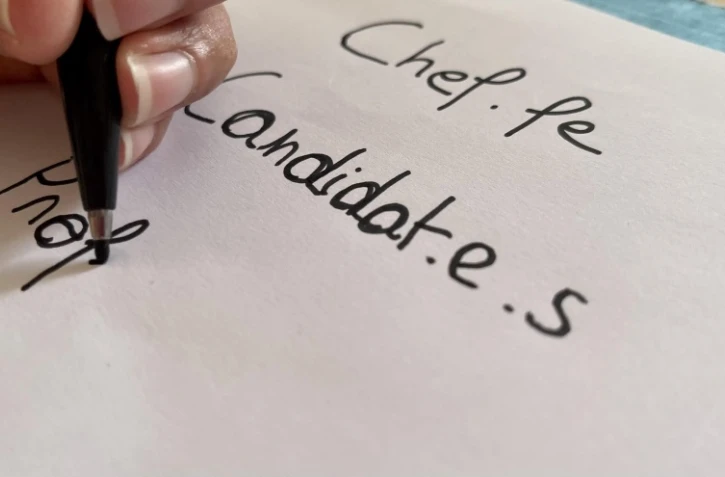 Chef.fe
Candidat.e.s
Prof